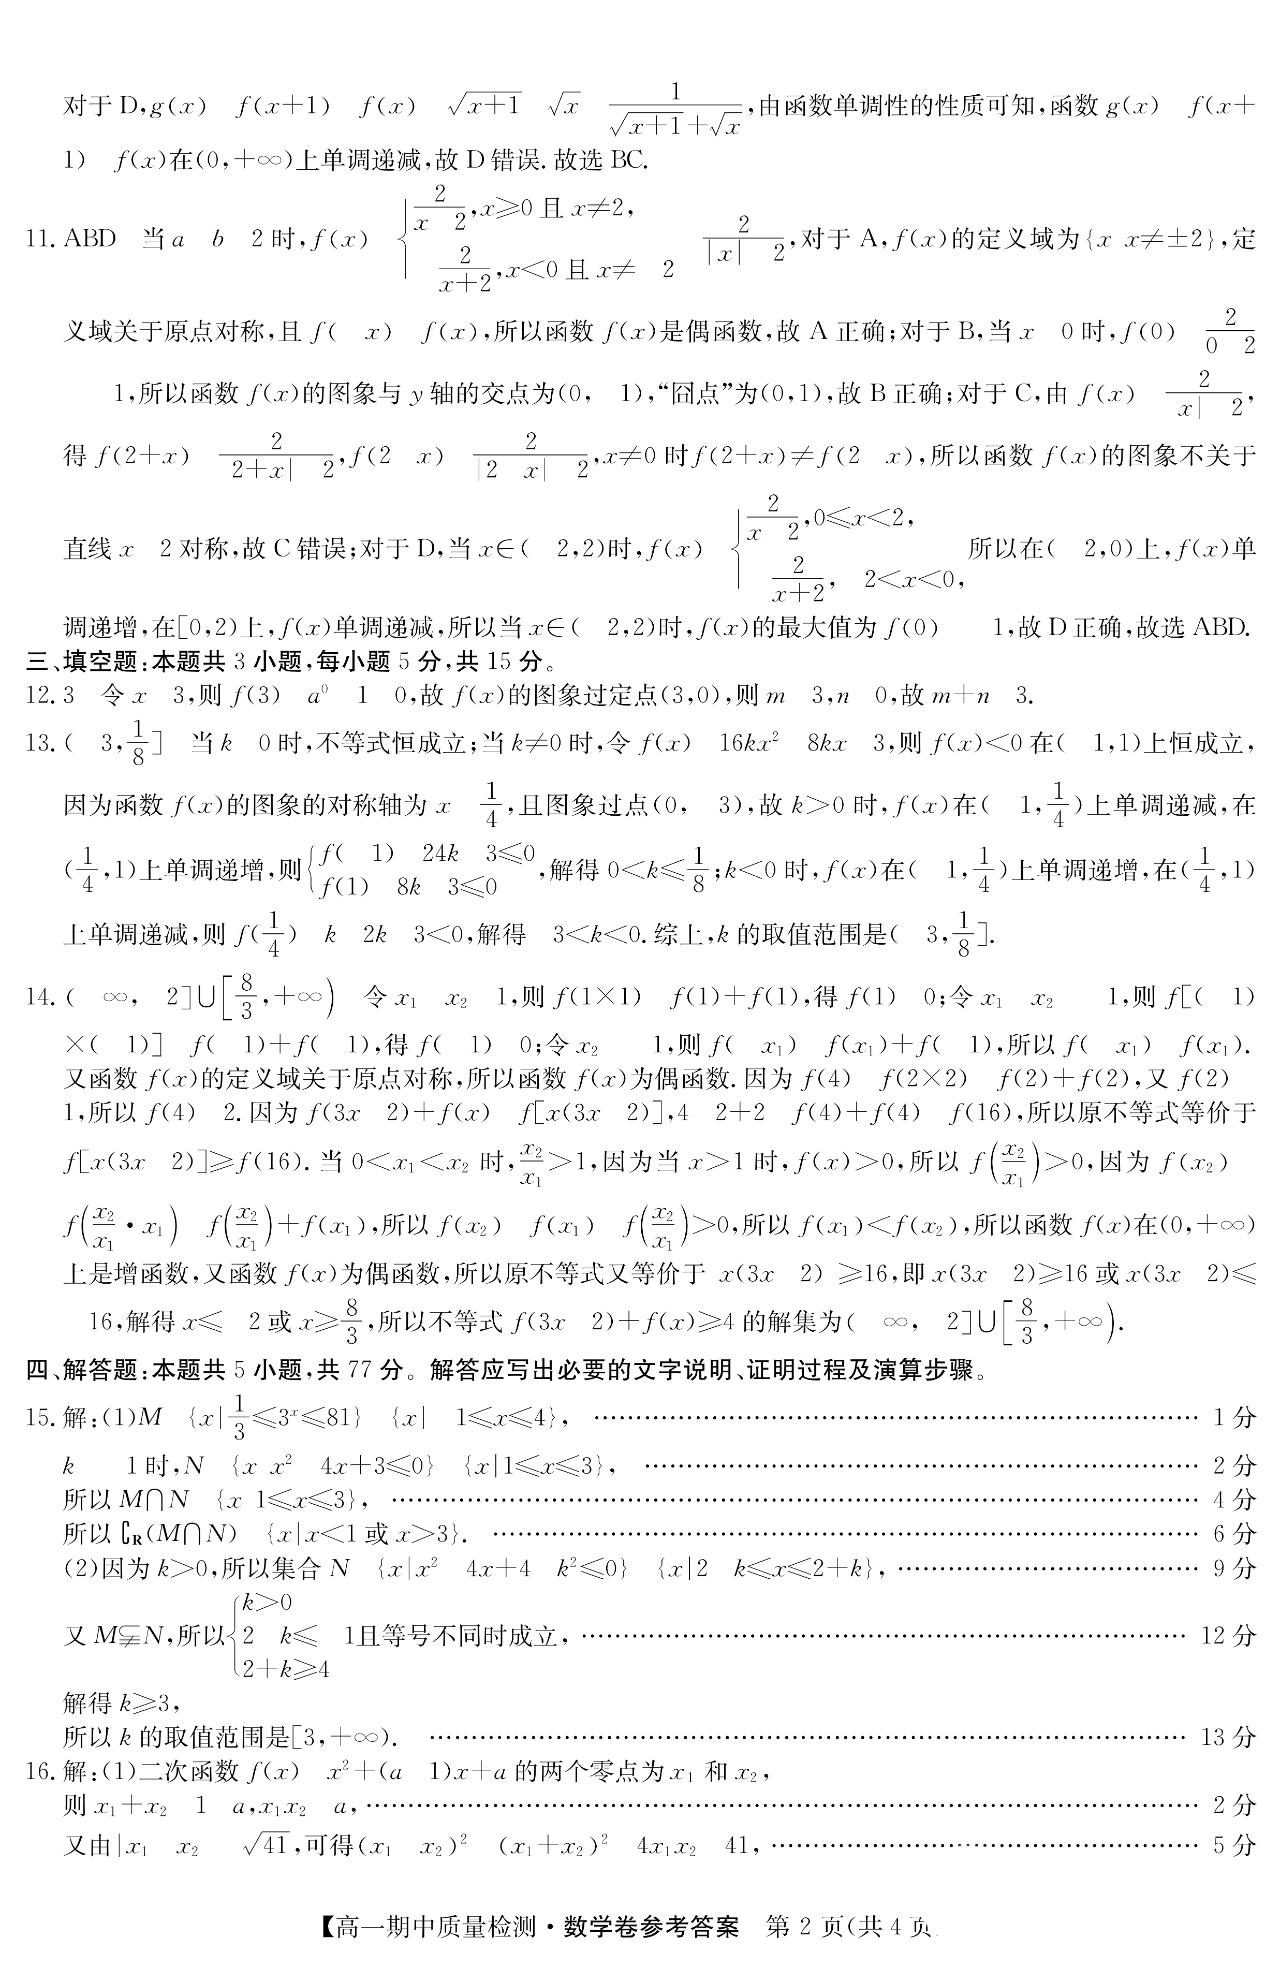 对于 D,g(x)　f(x+1)　f(x)　√(x+1)　√x　1/(√(x+1)+√x),由函数单调性的性质可知,函数 g(x)　f(x+
1)　f(x)在(0,+∞)上单调递减,故 D 错误. 故选 BC.
11. ABD　当 a　b　2 时,f(x)　{2/(x　2),x≥0 且 x≠2,　2/(x+2),x<0 且 x≠　2　2/(|x|　2),对于 A,f(x)的定义域为{x　x≠±2},定
义域关于原点对称,且 f(　x)　f(x),所以函数 f(x)是偶函数,故 A 正确;对于 B,当 x　0 时,f(0)　2/(0　2)
1,所以函数 f(x)的图象与 y 轴的交点为(0,　1),“囧点”为(0,1),故 B 正确;对于 C,由 f(x)　2/(x|　2),
得 f(2+x)　2/(2+x|　2),f(2　x)　2/(|2　x|　2),x≠0 时 f(2+x)≠f(2　x),所以函数 f(x)的图象不关于
直线 x　2 对称,故 C 错误;对于 D,当 x∈(　2,2)时,f(x)　{2/(x　2),0≤x<2,　2/(x+2),　2<x<0,　所以在(　2,0)上,f(x)单
调递增,在[0,2)上,f(x)单调递减,所以当 x∈(　2,2)时,f(x)的最大值为 f(0)　1,故 D 正确,故选 ABD.
三、填空题:本题共 3 小题,每小题 5 分,共 15 分。
12. 3　令 x　3,则 f(3)　a⁰　1　0,故 f(x)的图象过定点(3,0),则 m　3,n　0,故 m+n　3.
13. (　3,1/8]　当 k　0 时,不等式恒成立;当 k≠0 时,令 f(x)　16kx²　8kx　3,则 f(x)<0 在(　1,1)上恒成立,
因为函数 f(x)的图象的对称轴为 x　1/4,且图象过点(0,　3),故 k>0 时,f(x)在(　1,1/4)上单调递减,在
(1/4,1)上单调递增,则{f(　1)　24k　3≤0　f(1)　8k　3≤0,解得 0<k≤1/8;k<0 时,f(x)在(　1,1/4)上单调递增,在(1/4,1)
上单调递减,则 f(1/4)　k　2k　3<0,解得　3<k<0. 综上,k 的取值范围是(　3,1/8].
14. (　∞,　2]∪[8/3,+∞)　令 x₁　x₂　1,则 f(1×1)　f(1)+f(1),得 f(1)　0;令 x₁　x₂　1,则 f[(　1)
×(　1)]　f(　1)+f(　1),得 f(　1)　0;令 x₂　1,则 f(　x₁)　f(x₁)+f(　1),所以 f(　x₁)　f(x₁).
又函数 f(x)的定义域关于原点对称,所以函数 f(x)为偶函数. 因为 f(4)　f(2×2)　f(2)+f(2),又 f(2)
1,所以 f(4)　2. 因为 f(3x　2)+f(x)　f[x(3x　2)],4　2+2　f(4)+f(4)　f(16),所以原不等式等价于
f[x(3x　2)]≥f(16). 当 0<x₁<x₂ 时,x₂/x₁>1,因为当 x>1 时,f(x)>0,所以 f(x₂/x₁)>0,因为 f(x₂)
f(x₂/x₁·x₁)　f(x₂/x₁)+f(x₁),所以 f(x₂)　f(x₁)　f(x₂/x₁)>0,所以 f(x₁)<f(x₂),所以函数 f(x)在(0,+∞)
上是增函数,又函数 f(x)为偶函数,所以原不等式又等价于　x(3x　2)　≥16,即 x(3x　2)≥16 或 x(3x　2)≤
16,解得 x≤　2 或 x≥8/3,所以不等式 f(3x　2)+f(x)≥4 的解集为(　∞,　2]∪[8/3,+∞).
四、解答题:本题共 5 小题,共 77 分。解答应写出必要的文字说明、证明过程及演算步骤。
15. 解:(1)M　{x|1/3≤3ˣ≤81}　{x|　1≤x≤4}, …… 1 分
k　1 时,N　{x　x²　4x+3≤0}　{x|1≤x≤3}, …… 2 分
所以 M∩N　{x　1≤x≤3}, …… 4 分
所以 ∁R(M∩N)　{x|x<1 或 x>3}. …… 6 分
(2)因为 k>0,所以集合 N　{x|x²　4x+4　k²≤0}　{x|2　k≤x≤2+k}, …… 9 分
又 M⫋N,所以{k>0　2　k≤　1　2+k≥4　且等号不同时成立, …… 12 分
解得 k≥3,
所以 k 的取值范围是[3,+∞). …… 13 分
16. 解:(1)二次函数 f(x)　x²+(a　1)x+a 的两个零点为 x₁ 和 x₂,
则 x₁+x₂　1　a,x₁x₂　a, …… 2 分
又由|x₁　x₂　√41,可得(x₁　x₂)²　(x₁+x₂)²　4x₁x₂　41, …… 5 分
【高一期中质量检测·数学卷参考答案　第 2 页(共 4 页